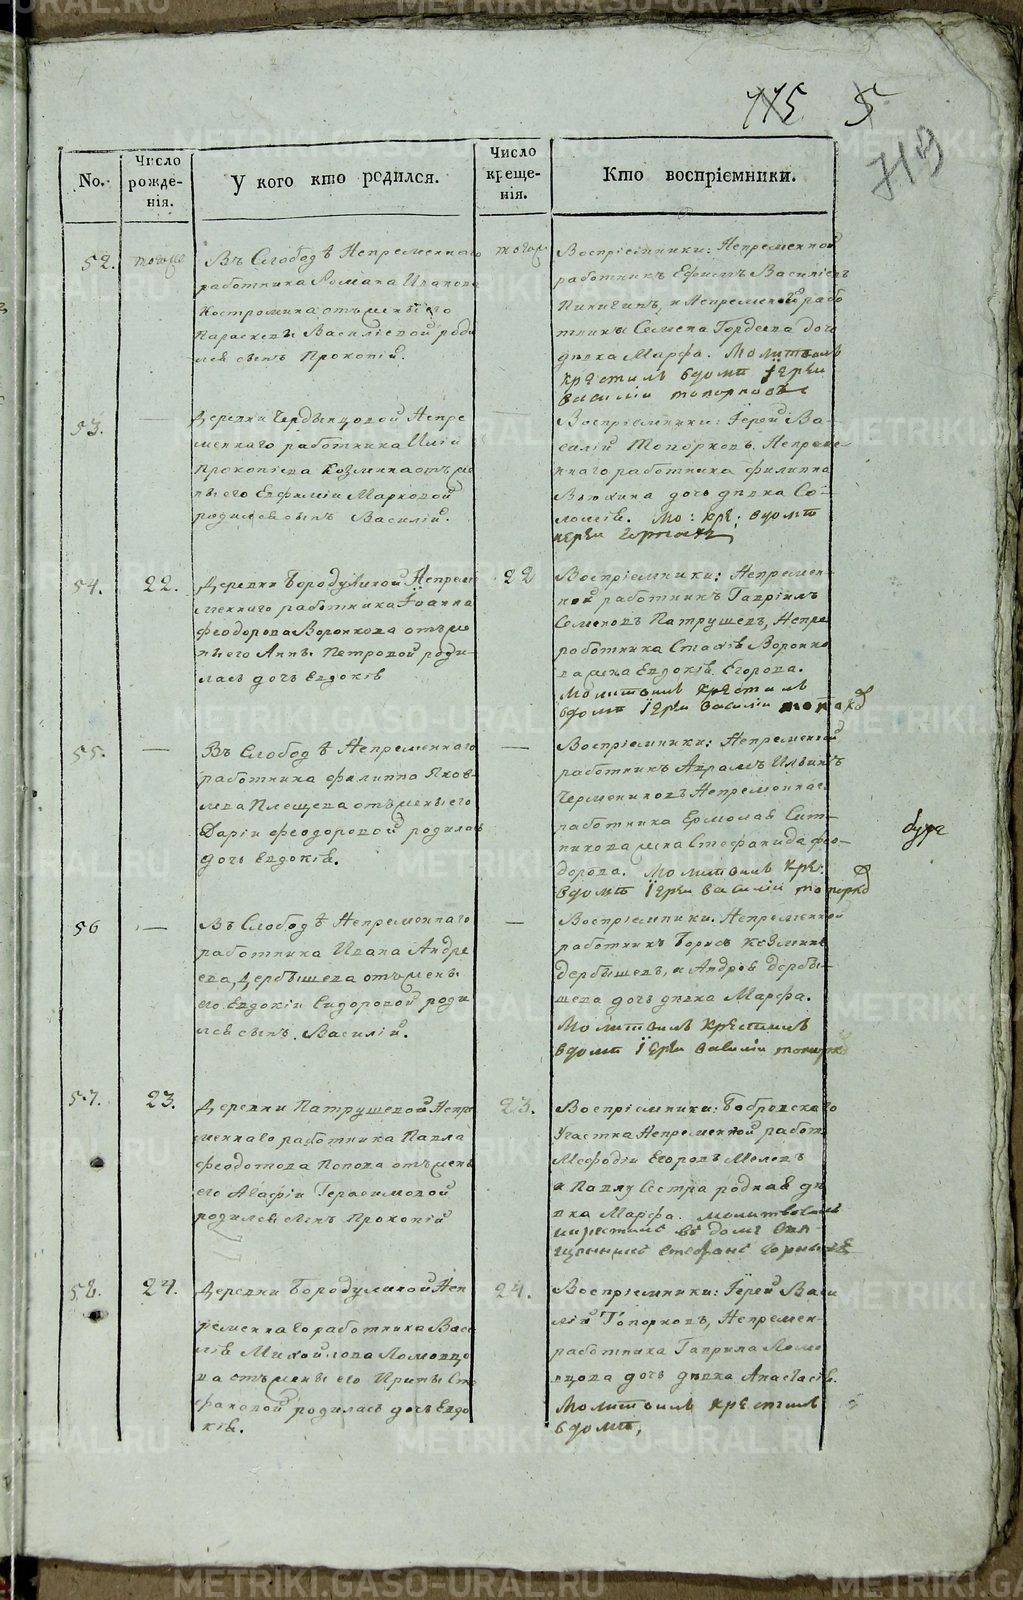 115 5
719
No.
Число рожденія.
У кого кто родился.
Число крещенія.
Кто воспріемники.
52.
тогож
Въ Слободѣ Непременнаго
работника Романа Иванова
Костромина отъ жены его
Параскевы Василіевой роди
лся сынъ Прокопій.
тогож
Воспріемники: Непременной
работникъ Ефимъ Василіевъ
Пичигинъ, и Непременной рабо
тника Семена Гордеева дочь
девка Марфа. Молитвилъ
крестилъ вдоме Іерей
Василіи Топорковъ
53.
—
Деревни Непре
меннаго работника Иліи
Прокопіева Козмина отъ же
ны его Евфиміи Марковой
родился сынъ Василій.
—
Воспріемники: Іерей Ва-
силій Топорковъ, Непреме-
ннаго работника Филиппа
Вьюхина дочь девка Со-
ломія. Мо: кре: вдоме
иерей
54.
22.
Деревни Бородулиной Непрем
меннаго работника Іоанна
Феодорова Воронкова отъ же
ны его Анны Петровой роди-
лась дочь Евдокія
22
Воспріемники: Непремен-
ной работникъ Гавріилъ
Семеновъ Патрушевъ, Непре
работника Стахія Воронко
ва жена Евдокія Егорова.
Молитвилъ крестилъ
вдоме Іереи Василіи Топорко
55.
—
Въ Слободѣ Непременнаго
работника Филиппа Яков-
лева Плещева отъ жены его
Даріи Феодоровой родилась
дочь Евдокія.
—
Воспріемники: Непременной
работникъ Аврамъ Ильинъ
Чермениковъ Непременнаго
работника Ермолая Сит-
никова жена Стефанида Фео-
дорова. Молитвилъ Кре:
вдоме Іереи Василіи Топорко
56
—
Въ Слободѣ Непременнаго
работника Ивана Андре
ева Дербышева отъ жены
его Евдокіи Сидоровой роди
лся сынъ Василій.
—
Воспріемники: Непременной
работникъ Борисъ Козминъ
Дербышевъ, и Андрея Дербы-
шева дочь девка Марфа.
Молитвилъ крестилъ
вдоме Іереи Василіи Топорко
57.
23.
Деревни Патрушевой Непре
меннаго работника Павла
Феодотова Попова отъ жены
его Агафіи Герасимовой
родился сынъ Прокопій
23.
Воспріемники: Бобровскаго
Участка Непременной работ
Мефодіи Егоровъ Мелевъ
и Павлу Сестра родная де
вка Марфа. молитвовалъ
икрестилъ въ доме Свя-
щенникъ Стефанъ
58.
24.
Деревни Бородулиной Неп
ременнаго работника Васи
лія Михайлова Ломовцо
ва отъ жены его Ирины Сте
фановой родилась дочь Евдо
кія.
24.
Воспріемники: Іерей Васи
лій Топорковъ, Непремен-
работника Гаврила Ломо
вцова дочь девка Анастасія.
Молитвилъ крестилъ
вдоме,
METRIKI.GASO-URAL.RU